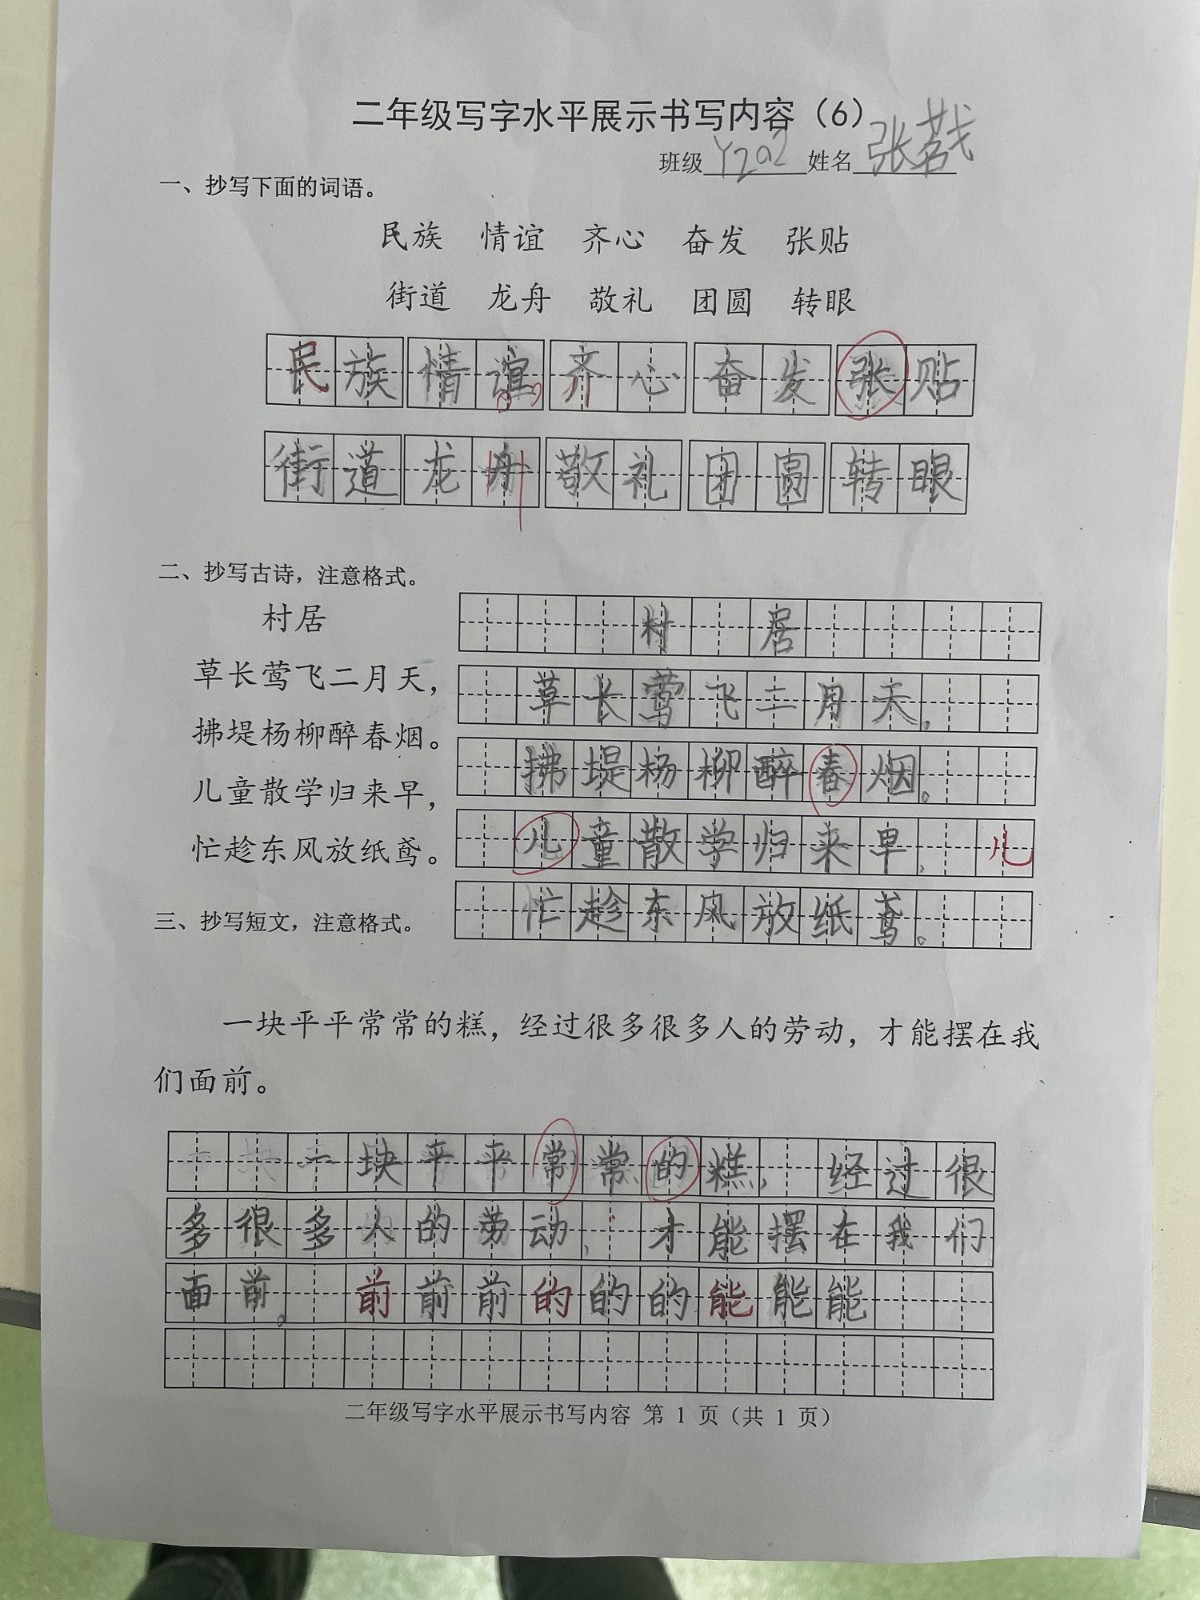 二年级写字水平展示书写内容（6）
班级 Y2a2 姓名 张
一、抄写下面的词语。
民族 情谊 齐心 奋发 张贴
街道 龙舟 敬礼 团圆 转眼
民族 情谊 齐心 奋发 张贴
街道 龙舟 敬礼 团圆 转眼
二、抄写古诗，注意格式。
村居
草长莺飞二月天，
拂堤杨柳醉春烟。
儿童散学归来早，
忙趁东风放纸鸢。
村居
草长莺飞二月天，
拂堤杨柳醉春烟。
儿童散学归来早， 儿
忙趁东风放纸鸢。
三、抄写短文，注意格式。
一块平平常常的糕，经过很多很多人的劳动，才能摆在我
们面前。
一块平平常常的糕，经过很
多很多人的劳动，才能摆在我们
面前。 前前前的的的能能能
二年级写字水平展示书写内容 第 1 页（共 1 页）